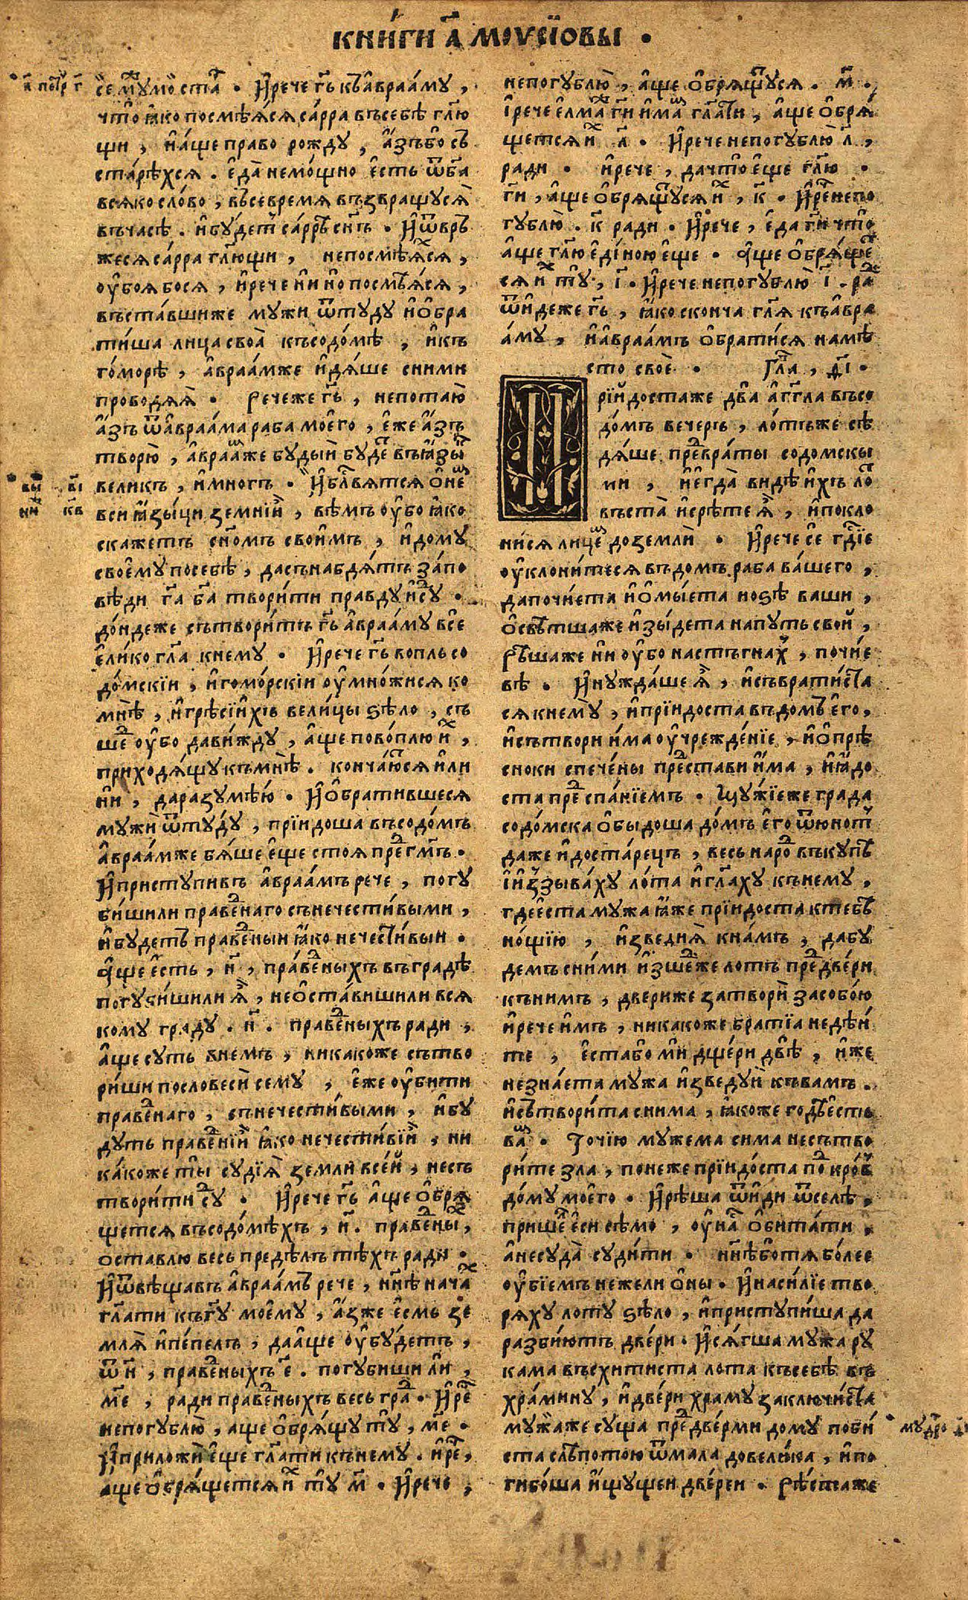 КНИ́ГИ А҃ МОѴСЇѠВЫ .
а҃ петр҇ г҃
се мꙋ мо ста . И҆рече гь҃ къ а҆враа́мꙋ ,
что ꙗ҆ко посмѣѧсѧ са́рра въсебѣ гл҃ю
щи , и҆ а҆ще право рождꙋ , а҆зъ бо съ
ста́рѣхсѧ . е҆да немо́щно е҆сть ѿ ба҃
всѧко сло́во , въ сѐ времѧ възвращꙋсѧ
въча́сѣ . и҆бꙋ́детъ са́ррѣ сн҃ъ . И҆ ѿвръ
жесѧ са́рра гл҃ющи , непосмѣѧ́хсѧ ,
оу҆боѧ босѧ , и҆рече ни но посмѣѧсѧ ,
въста́вшиже мꙋжи ѿтꙋдꙋ и҆ ѡ҆бра
ти́ша лица своѧ̀ къ содо́мѣ , и҆къ
гомо́рѣ , а҆враа́мже и҆дѧ́ше сними
прово́дѧѧ . Речеже гь҃ , непотаю̀
а҆зъ ѿ а҆враа́ма раба мое́го , е҆же а҆зъ
творю̀ , а҆враа́мже бꙋдый бꙋ́де въ ꙗ҆зы́
великъ , и҆ мно́гъ . И҆ бл҃вѧтсѧ ѡ҆ не́
вси ꙗ҆зы́ци зе́мнїи , вѣ́мъ оу҆бо ꙗ҆ко
ска́жетъ сн҃омъ свои́мъ , и҆ до́мꙋ
свое́мꙋ посебѣ , да съ набдѧ́тъ за́по
вѣди г҃а б҃а твори́ти правдꙋ и҆ сꙋ́ .
до́ндеже сътвори́тъ гь҃ а҆враа́мꙋ всѐ
е҆ли́ко гл҃а кнемꙋ . И҆рече гь҃ вопль со
до́мскїи , и҆ гомо́рскїи оу҆мно́жисѧ ко
мнѣ , и҆ грѣси и҆ хъ вели́цы ѕѣло , съ
ше оу҆бо да ви́ждꙋ , а҆ще по во́плю и҆х ,
приходѧ́щꙋ къ мнѣ . конча́юсѧ и҆ли
ни , да разꙋмѣ́ю . И҆ ѡ҆братившесѧ
мꙋ́жи ѿтꙋ́дꙋ , прїидоша въ содо́мъ
а҆враа́мже бѧ́ше е҆ще стоѧ пред гм҃ъ .
И҆ пристꙋпивъ а҆враа́мъ рече , погꙋ
би́шили праве́наго сънечести́выми ,
и҆ бꙋ́детъ праве́ныи ꙗ҆ко нечести́выи .
А҆ще е҆сть , н҃ , пра́ве́ныхъ въ градѣ
погꙋби́шили ѧ҆̀ , не ѡ҆ста́вишили всѧ
комꙋ гра́дꙋ . н҃ . праве́ныхъ ради ,
а҆ще сꙋть внемъ , никакоже сътво
ри́ши по словеси семꙋ , е҆же оу҆би́ти
праве́наго , сънечести́выми , и҆ бꙋ
дꙋть праве́нїи ꙗ҆ко нечести́вїи , ни
ка́коже ты̀ сꙋдїѧ̀ земли̂ все́й , несъ
твори́ти сꙋ́ . И҆рече гь҃ а҆ще ѡ҆брѧ
щетсѧ въ содо́мѣхъ , н҃ . праве́ны ,
оставлю весь предѣ́лъ тѣ́хъ ради .
И҆ ѿвѣщавъ а҆враа́мъ рече , нн҃ѣ нача
гл҃ати къ гꙋ҃ мое́мꙋ , а҆зже е҆смь зе
млѧ̀ и҆ пе́пелъ , да а҆ще оу҆бꙋдетъ ,
ѿ н҃ , праве́ныхъ е҃ . погꙋбиши ли ,
м҃е , ради праве́ныхъ весь гра . И҆ре
непогꙋблю̀ , аще ѡ҆брѧ́щꙋ тꙋ̀ , м҃е .
И҆ приложѝ е҆ще гл҃ати къ немꙋ . и҆ре ,
аще ѡ҆брѧ́щетсѧ и҆ тꙋ м҃ . И҆рече ,
непогꙋблю̀ , а҆ще ѡ҆брѧ́щꙋсѧ . м҃ .
И҆рече е҆лма ги҃ и҆ма гл҃ати , а҆ще ѡ҆брѧ́
щетсѧ и҆ х л҃ . И҆рече непогꙋблю̀ л҃ ,
ради . и҆рече , да что̀ е҆ще гл҃ю .
ги҃ , а҆ще ѡ҆брѧщꙋсѧ и҆ , к҃ . И҆ре́ непо
гꙋблю̀ . к҃ ради . И҆рече , е҆да ги҃ что̀
а҆ще гл҃ю е҆ди́ною е҆ще . А҆ще ѡ҆брѧще
сѧ и҆ тꙋ̀ , і҃ . И҆рече непогꙋблю̀ і҃ . ра
ѿидеже гь҃ , ꙗ҆ко сконча гл҃ѧ къ а҆вра
а́мꙋ , и҆ а҆враа́мъ ѡ҆брати́сѧ на мѣ
сто своѐ . Гла҃ , ѳ҃і .
ПРїидостаже два̀ а҆гг҃ла въ со
до́мъ вечеръ , ло́тъже сѣ
дѧ́ше пре́ враты содомскы
ми , и҆ е҆гда̀ видѣ и҆хъ ло
въста̀ и҆ срѣ́те ѧ҆̀ , и҆ покло
ни́сѧ лице́ до земли̂ . И҆рече се гд҃їе
оу҆клони́тесѧ въ домъ раба ва́шего ,
да почи́ета и҆ ѡ҆мы́ета но́ѕѣ ваши ,
ѡ҆свѣтшаже и҆зы́дета на пꙋть свой ,
Рѣшаже ни оу҆бо на стъгнах , почи́е
вѣ . И҆ нꙋжда́ше ѧ҆̀ , и҆ съврати́ста
сѧ кнемꙋ̀ , и҆ прїидоста въ домъ е҆го ,
и҆ сътвори и҆ма оу҆чреждє́нїе , и҆ ѡ҆прѣ
сноки спече́ны пре́стави и҆̀ма , и҆ ꙗ҆до
ста пре́ спа́нїемъ . Мꙋжїеже града
содо́мска ѡ҆быдоша до́мъ е҆го ѿ юнот
даже и҆ до ста́рець , весь наро въкꙋпѣ
и҆ и҆ззыва́хꙋ ло́та и҆ гл҃ахꙋ къ немꙋ ,
где е҆ста мꙋжа ꙗ҆̀же прїидоста ктебѣ
но́щїю , и҆зведи ѧ҆̀ кна́мъ , да бꙋ
демъ сни́ми и҆зше́же лотъ пред две́ри
къ нимъ , двери же затвори за собо́ю
и҆рече и҆мъ , никакоже бра́тїа недѣи
те , е҆стабо мѝ дще́ри двѣ̀ , и҆же
незна́ета мꙋжа и҆зведꙋ и҆ къвамъ .
и҆ сътвори́та снима , ꙗ҆коже годѣ е҆сть
ва . То́чїю мꙋ́жема сима несътво
ри́те зла , понеже прїидо́ста по кро́в
до́мꙋ мое́го . И҆ рѣша ѿиди ѿселѣ .
прише́ е҆си сѣ́мо , оу҆ на ѡ҆битати .
а҆ не сꙋда̀ сꙋди́ти . нн҃ѣ бо тѧ бо́лее
оу҆бїемъ нежели ѡ҆ны . И҆ наси́лїе тво
рѧ́хꙋ ло́тꙋ ѕѣло , и҆ пристꙋпи́ша да
разбїю́тъ две́ри . И҆ сѧ́гша мꙋжа рꙋ
кама въсхити́ста лота къ себѣ въ
хра́минꙋ , и҆ двери храмꙋ заключи́ста
мꙋжаже сꙋща пред две́рми домꙋ поби
ста слѣпотою ѿ мала до вели́ка , и҆ по
гибо́ша и҆щꙋщеи две́реи . Рѣ́стаже
бы ві҃
ни кв
мꙋдро і҃